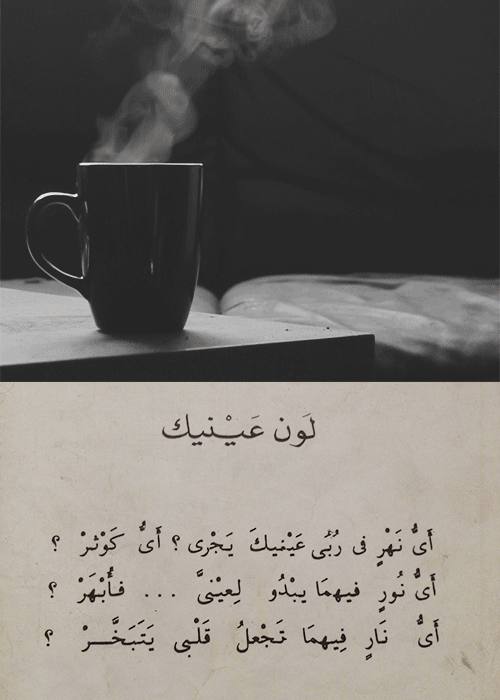 لَون عَيْنيك
أَىُّ نَهْرٍ فى رُبَى عَيْنيكَ يَجْرى ؟ أَىُّ كَوْثرْ ؟
أَىُّ نُورٍ فيهمَا يبْدُو لِعيْنىَّ ... فأُبْهَرْ ؟
أَىُّ نَارٍ فِيهمَا تَجْعلُ قَلْبى يَتَبَخَّــرْ ؟